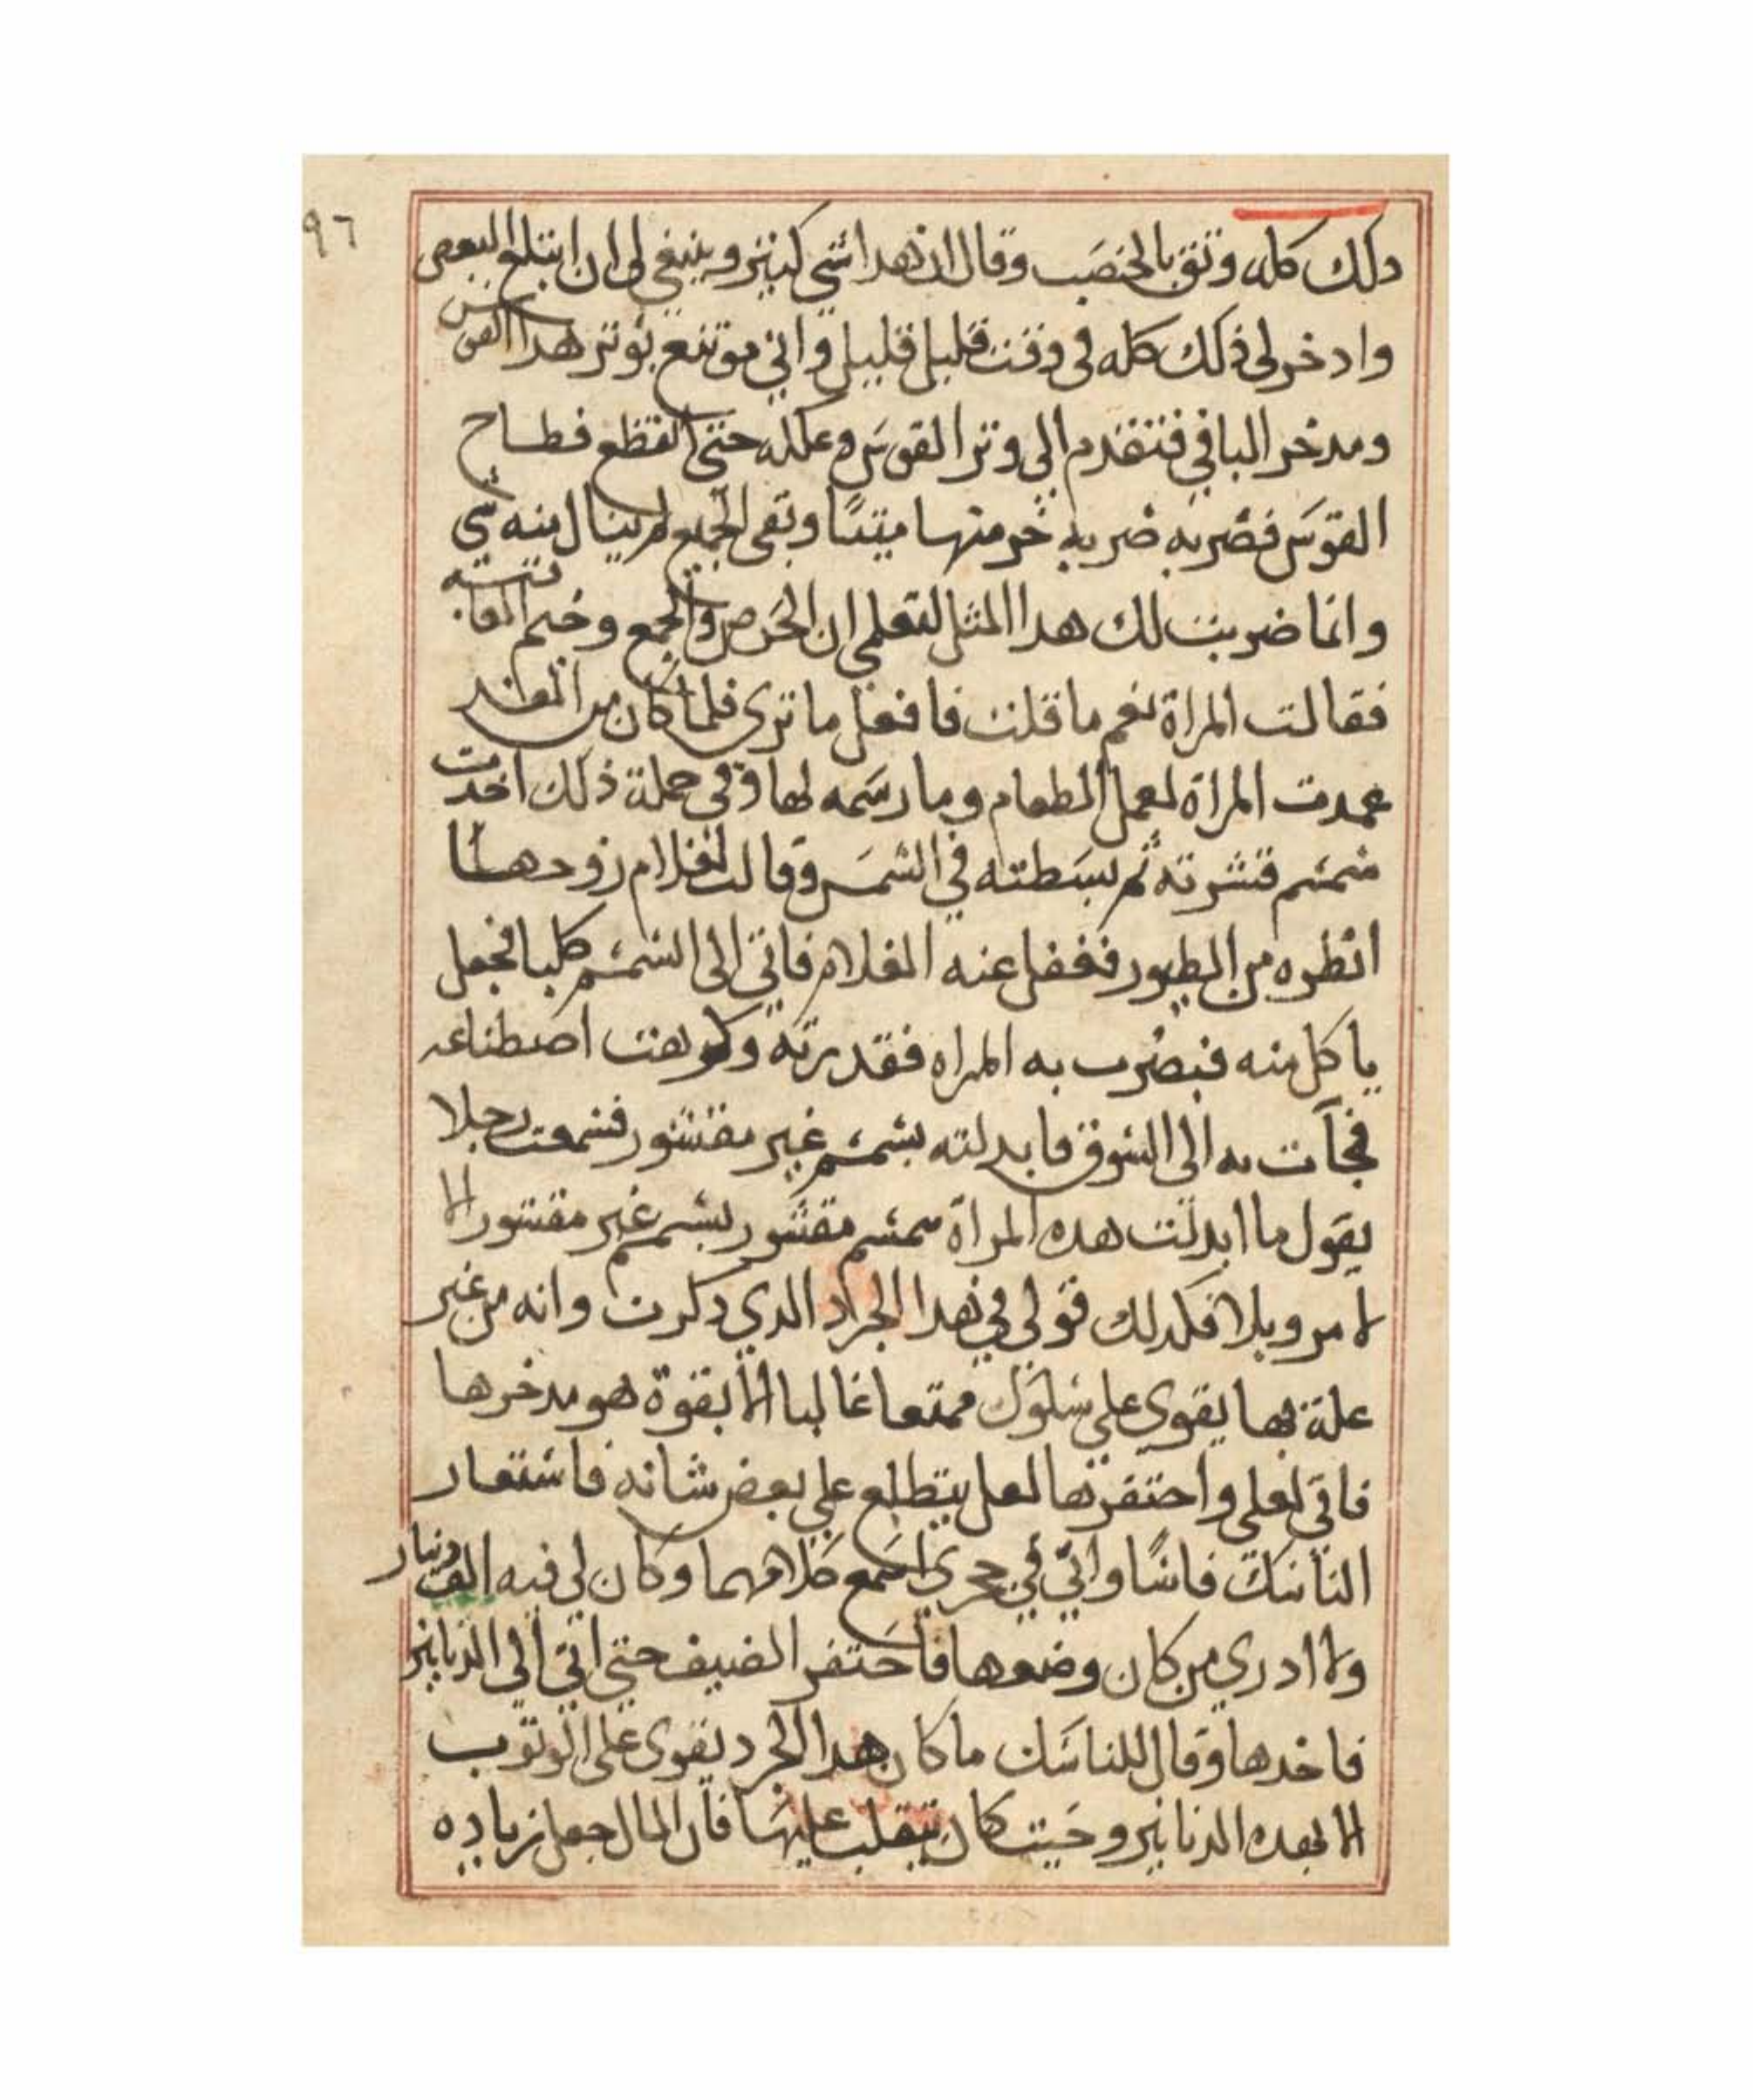 ٩٦
دلك كله وتق بالخصَب وقال ان هدا شي كبير وينبغي لي ان ابتلع البعص
وادخر لي ذلك كله في وقت قليل قليل واني موتنع بوتر هدا القوس
ومدخر الباقي فتقدم الي وتر القوسَ وعمله حتي انقطع فطاح
القوسَ فضربه ضربه خر منها ميتًا وبقى الجميع لم ينال منه شي
وانما ضربت لك هدا المثل لتعلمي ان الحَرص والجمع وخيم العاقبه
فقالت المراة نعم ما قلت فافعل ما تري فلما كان من الغد
عمدت المراة لعمل الطعام وما رسَمه لها وفي جملة ذلك اخدت
سَمسم قشرته ثم بسَطته في الشمسَ وقالت لغلام زوجها
انظره من الطيور فغفل عنه الغلام فاتي الى السمسم كلبا فجعل
ياكل منه فبصرت به المراه فقدرته وكرهت اصطناعه
فجآت به الى السوق فابدلته بسمسم غير مقشور فسمعت رجلا
يقول ما ابدلت هده المراة سمسم مقشور بسمسم غير مقشور الا
لامر وبلا فكدلك قولي في هدا الجراد الدي دكرت وانه من غير
علة بها يقوي علي سَلوك ممتعا غالبا الا بقوة هو مدخرها
فاتي لعلي واحتفرتها لعل يتطلع علي بعض شانه فاستعار
الناسَك فاسًا واني في جحري اسمع كلامهما وكان لي فيه الف دينار
ولا ادري من كان وضعها فاحَتفر الضيف حتي اتي الي الدنانير
فاخدها وقال للناسَك ما كان هدا الجرد يقوى على الوتوب
الا بهده الدنانير وحَيت كان يتقلب عليهَا فان المال جعل زياده